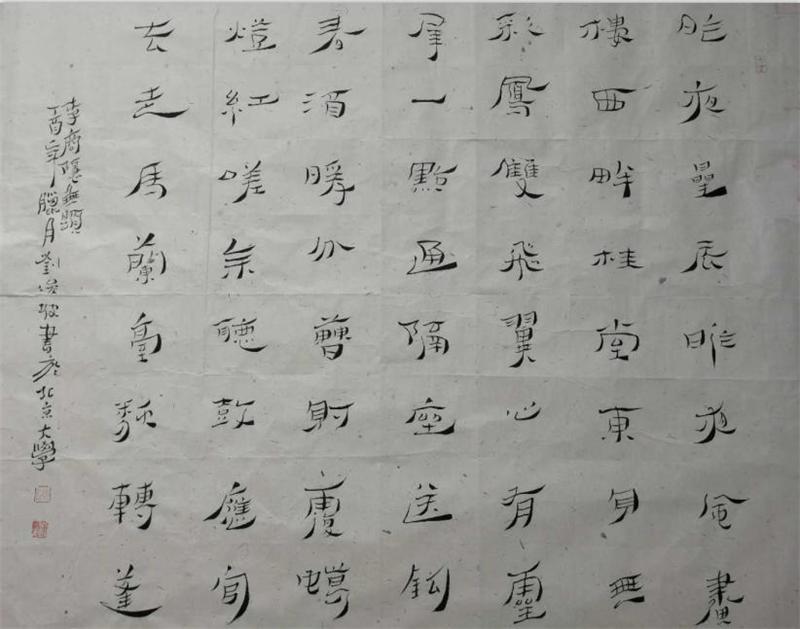 昨夜星辰昨夜風畫
樓西畔桂堂東身無
彩鳳雙飛翼心有靈
犀一點通隔座送鈎
春酒暖分曹射覆蠟
燈紅嗟余聽鼓應官
去走馬蘭臺類轉蓬
李商隱無題
丁酉年臘月劉書於北京大學